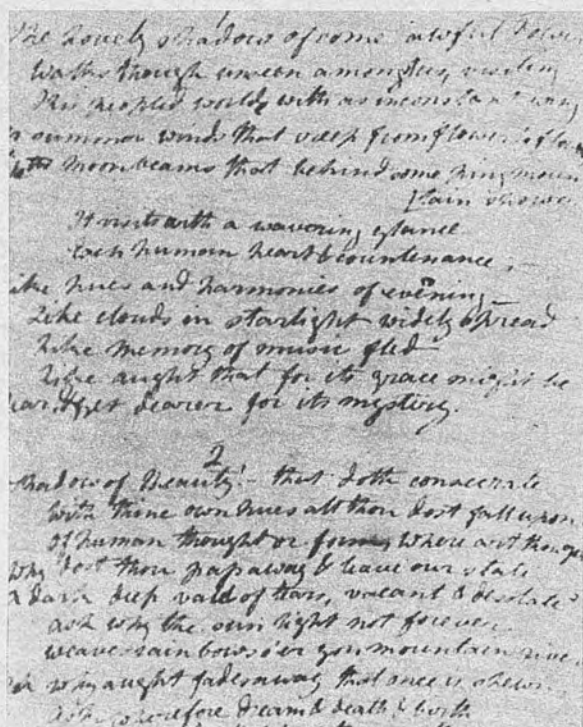 1
The lovely shadow of some awful Power
Walks though unseen amongst us, visiting
This peopled world, with as inconstant wing
As summer winds that creep from flower to flower
Like moonbeams that behind some piny moun
[tain shower
It visits with a wavering glance
Each human heart & countenance;—
Like hues and harmonies of evening—
Like clouds in starlight widely spread
Like memory of music fled
Like aught that for its grace might be
Dear, & yet dearer for its mystery.
2
Shadow of Beauty!— that doth consecrate
With thine own hues all thou dost fall upon
Of human thought or form, Where art thou gone
Why dost thou pass away & leave our state
A dark deep vale of tears, vacant & desolate?
Ask why the sun light not forever
weaves rainbows o'er yon mountain river
why aught fades away that once is shewn
Ask wherefore dream & death & birth